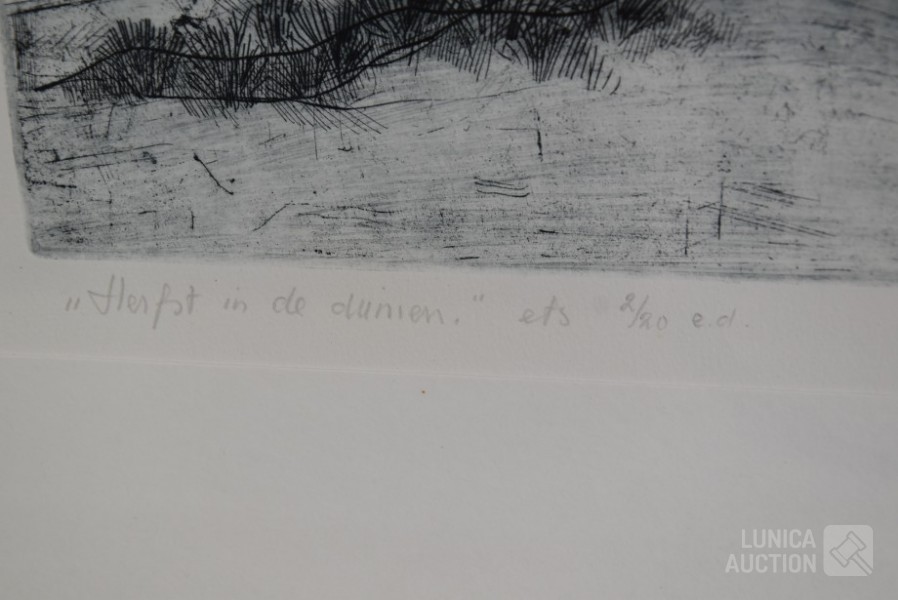 „Herfst in de duinen." ets 2/20 e.d.
LUNICA
AUCTION